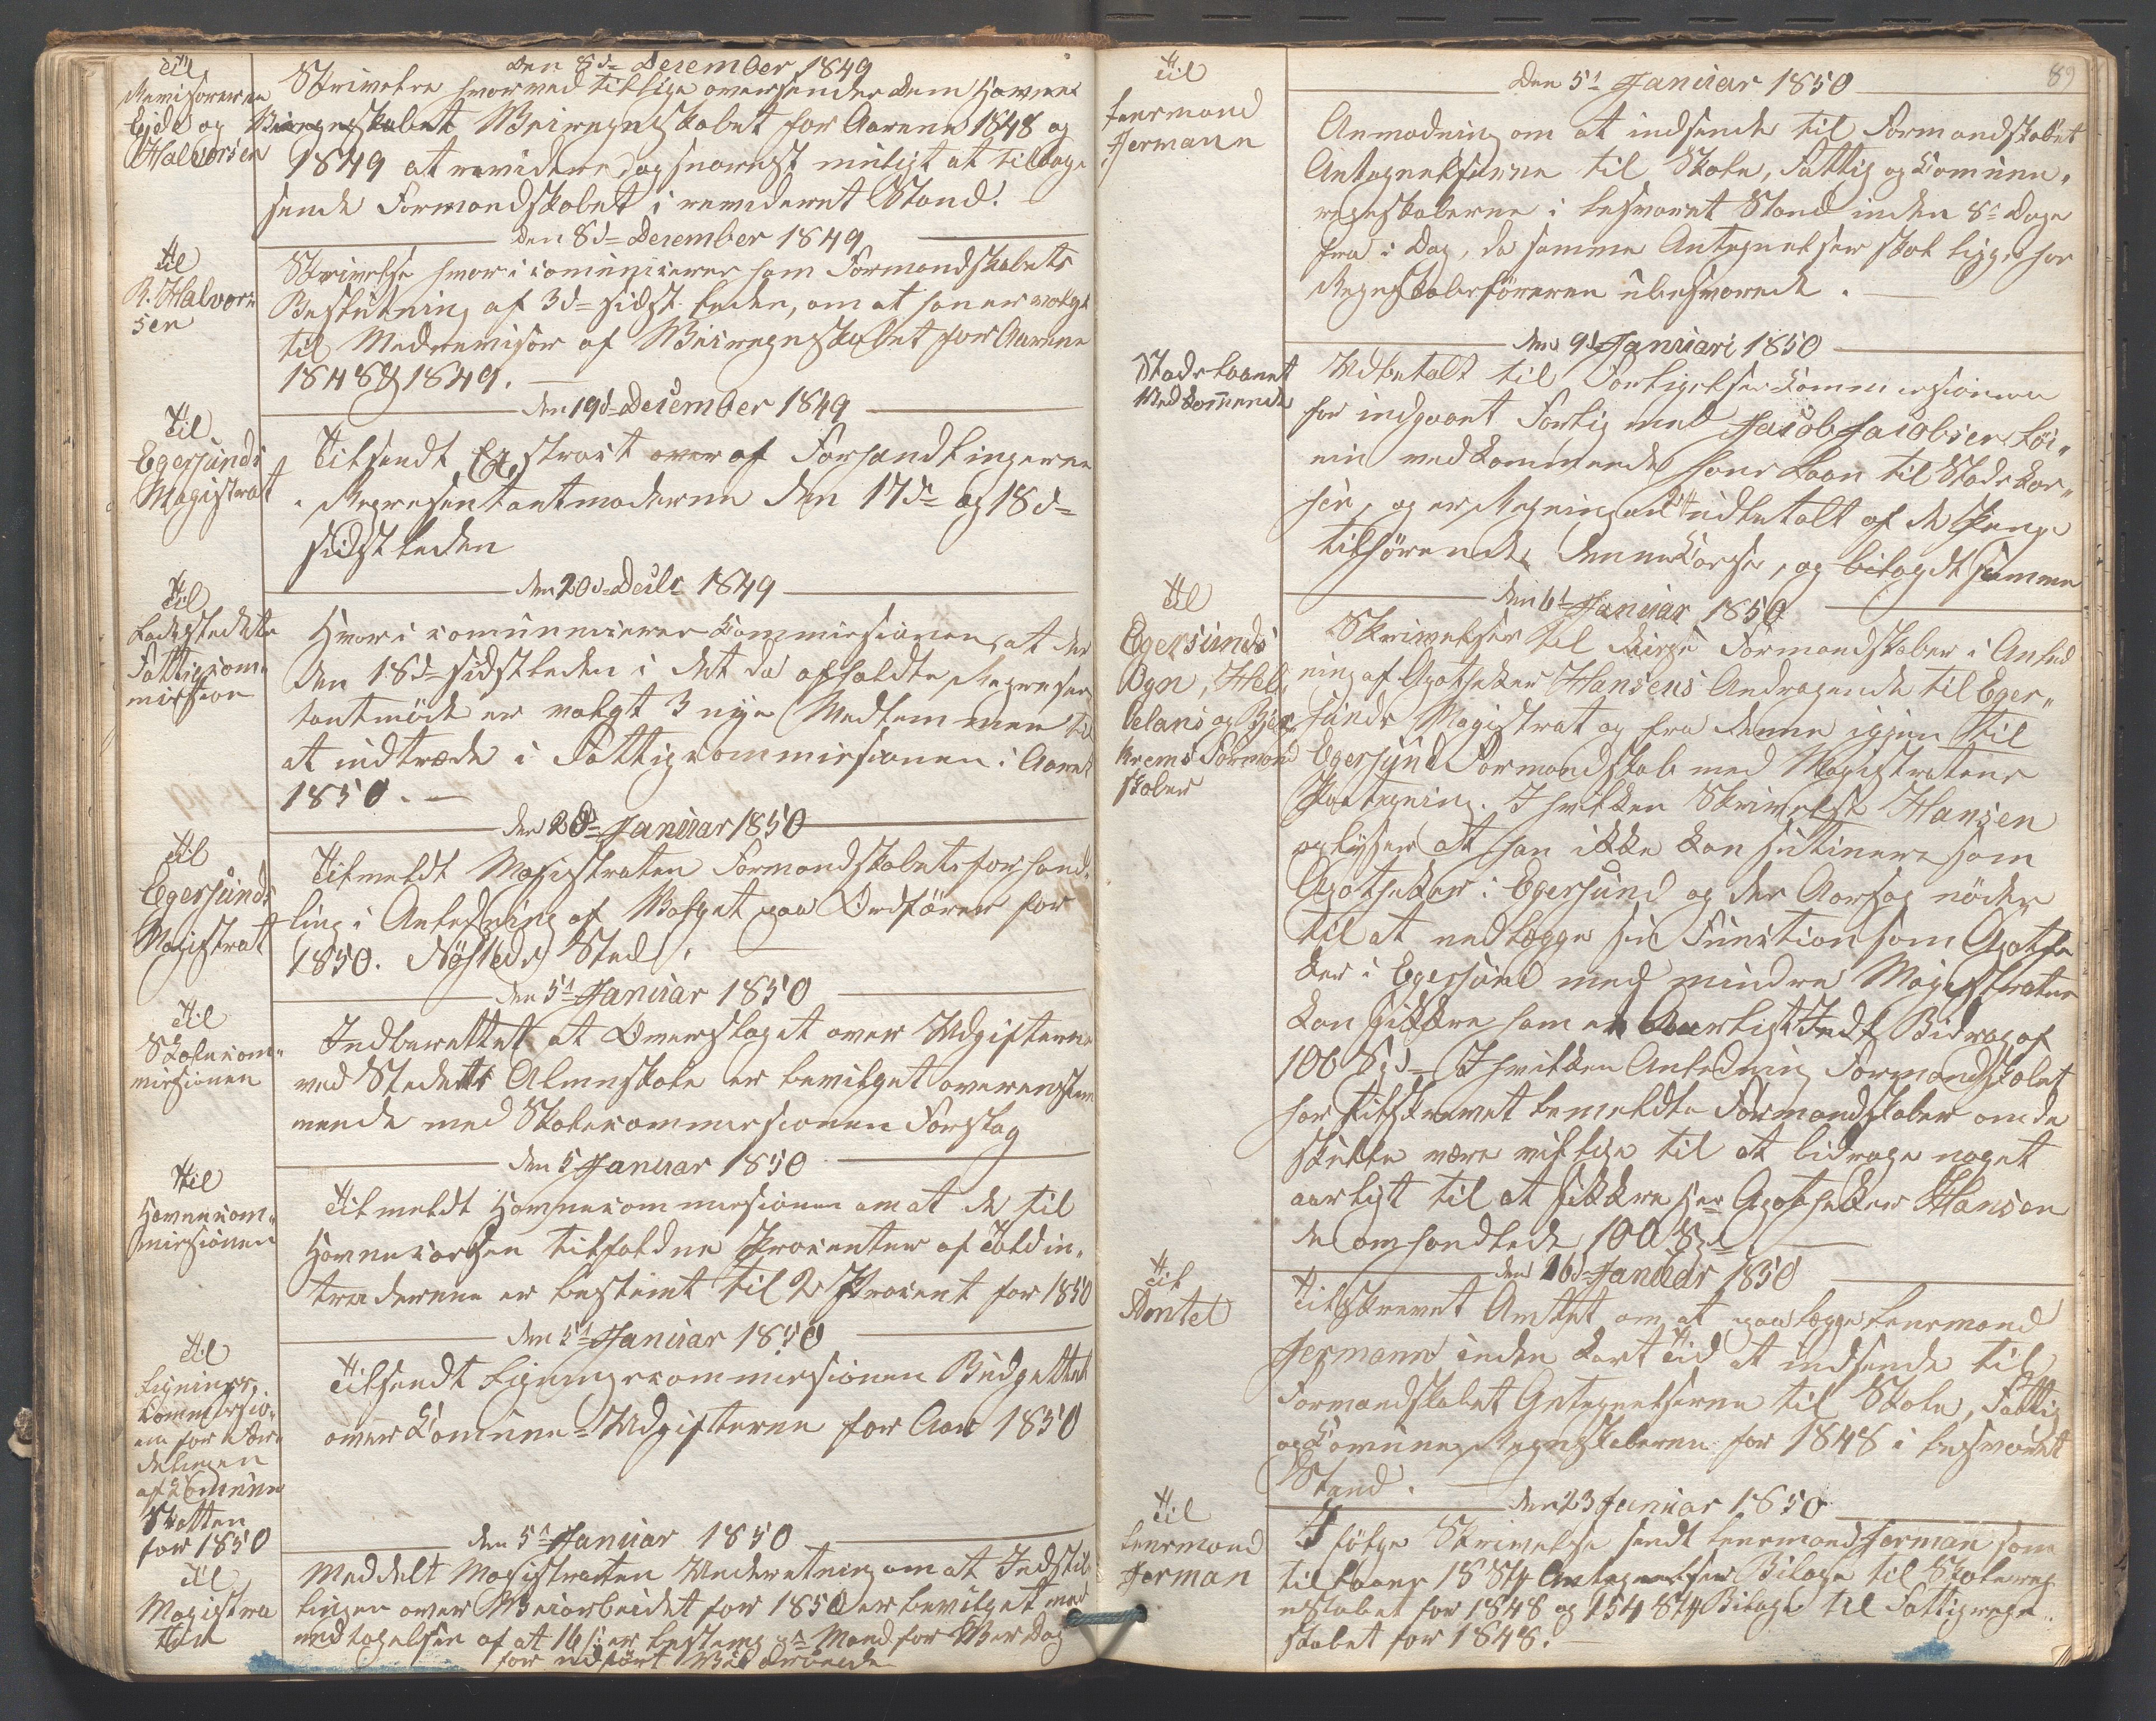 Til
Revisorerne
Eide og
Halvorsen
Den 8d= December 1849
Skrivelse hvorved tillige oversender dem Havne
Veiregnskabet for Aarene 1848 og
1849 at revidere og snarest muligt at tilbage
sende Formandskabet i revideret Stand.
Til
R. Halvor=
sen
Den 8d= December 1849
Skrivelse hvori comuniceres ham Formandskabets
Beslutning af 3d= sidstleden, om at han er valgt
til Medrevisor af Veiregnskabet for Aarene
1848 & 1849.
Til
Egersunds
Magistrat
Den 19d= December 1849
Tilsendt Extract over af Forhandlingerne
i Representantmøderne den 17d= og 18d=
sidstleden
Til
Ladestedets
Fattigcom=
mission
den 20d= Decbr 1849
Hvori comuniceres Commissionen, at der
den 18d= sidstleden i det da afholdte Represen
tantmøde er valgt 3 nye Medlemmer til
at indtræde i Fattigcommissionen i Aaret
1850.
Til
Egersunds
Magistrat
den 2d= Januar 1850
Tilmeldt Magistraten Formandskabets forhand=
ling i Anledning af Valget paa Ordfører for
1850. Nysleds Sted.
Til
Skolecom=
missionen
Den 5t Januar 1850
Indberettet at Overslaget over Udgifterne
ved Stedets Almuskole er bevilget overenstem
mende med Skolecommissionen Forslag
Til
Havnecom=
missionen
Den 5 Januar 1850
Tilmeldt Havnecommissionen om at de til
Havnecassen tilfaldne Procenter af Toldin=
traderne er bestemt til 2 Procent for 1850
Til
Lignings
Commissio=
nen for Uur=
delingen
af Comune
Skatten
for 1850
den 5t Januar 1850
Tilsendt Ligningscommissionen Budgettet
over Comune=Udgifterne for Aar 1850
Til
Magistra
ten
den 5t Januar 1850
Meddelt Magistraten Underretning om at Indstil
lingen over Veiarbeidet for 1850 er bevilget med
undtagelse af at 16 s: er bestemt pr Mand for Hver Dag
for udført Veiarbeide
89
Til
Lensmand
Jermann
Den 5t Januar 1850
Anmodning om at indsende til Formandskabet
Antegnelserne til Skole, Fattig og Comune=
regnskaberne i besvaret Stand inden 8te Dage
fra i Dag, da samme Antegnelser skal ligge hos
Regnskabsføreren ubesvarede.
Stadslaanet
Vedkommende
den 9d Januari 1850
Udbetalt til Forligelses Commissionen
for indgaaet Forlig med Jacob Jacobsen Loi=
nin vedkommende hans Laan til Stadskas=
sen, og er Regningen udbetalt af de Penge
tilhørende denne Casse, og bilagdt samme
Til
Egersunds
Ogn, Hel=
lelans og Bjer=
krems Formand
skaber
den 6t Januar 1850
Skrivelser til disse Formandskaber i Anled
ning af Apotheker Hansens Andragende til Eger=
sunds Magistrat og fra denne igjen til
Egersund Formandskab med Magistratens
Paategning. I hvilken Skrivelse Hansen
oplyser at han ikke kan sutinere som
Apotheker i Egersund og der Aarsag nødes
til at nedlægge sin Function som Apothe
ker i Egersund med mindre Magistraten
kan sikkre ham et Aarligt Indt Bidrag af
100 Spd= I hvilken Anledning Formandskabet
har tilskrevet bemeldte Formandskaber om de
skulle være villige til at bidrage noget
aarligt til at sikkre Hr Apotheker Hansen
de omhandlede 100 Spd
Til
Amtet
den 16d= Januar 1850
Tilskrevet Amtet om at paalægge Lensmand
Jermann inden kort Tid at indsende til
Formandskabet Antegnelserne til Skole, Fattig
og Comune Regnskaberne for 1848 i besvaret
Stand.
Til
Lensmand
Jerman
den 23 Januar 1850
I følge Skrivelse sendt Lensmand Jerman som
tillaans 18 Stk Antegnelser Bilage til Skolereg
nskabet for 1848 og 154 Stk Bilage til Fattigregn=
skabet for 1848.